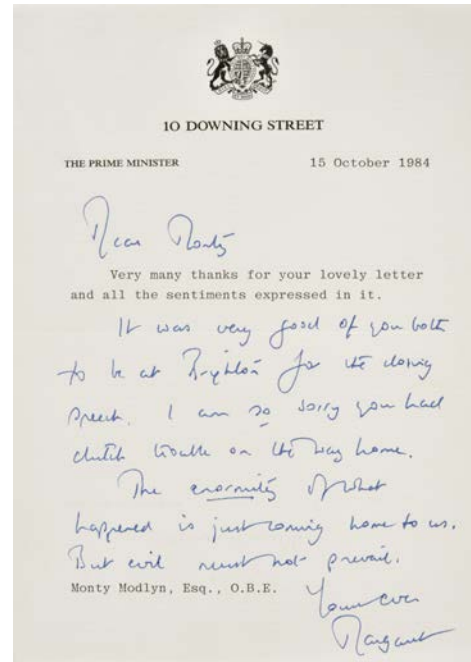 10 DOWNING STREET
THE PRIME MINISTER
15 October 1984
Dear Monty
Very many thanks for your lovely letter
and all the sentiments expressed in it.
It was very good of you both
to be at Brighton for the closing
speech. I am so sorry you had
clutch trouble on the way home.
The enormity of what
happened is just coming home to us.
But evil must not prevail.
Monty Modlyn, Esq., O.B.E.
Yours ever
Margaret